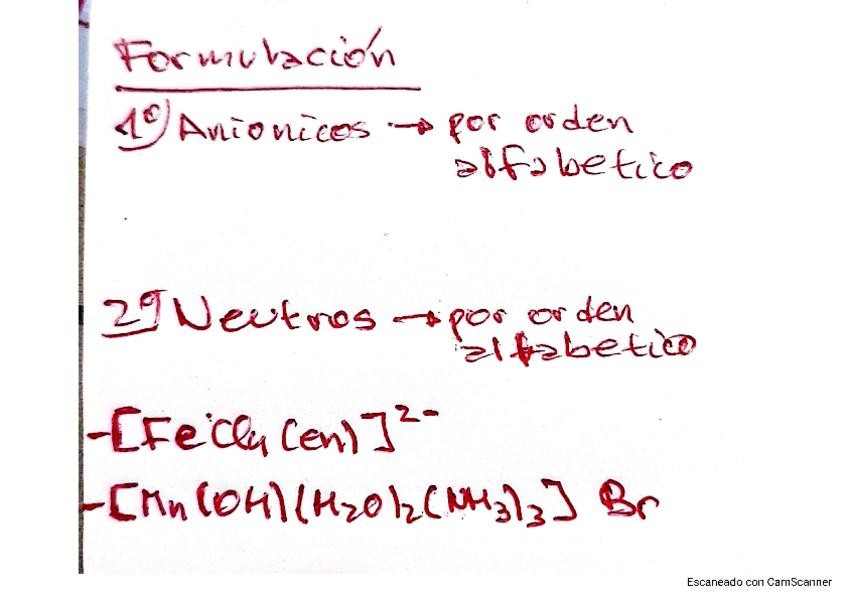 Formulación
1º) Anionicos → por orden
alfabetico
2º) Neutros → por orden
alfabetico
- [FeCl₄(en)]²⁻
- [Mn(OH)(H₂O)₂(NH₃)₃] Br
Escaneado con CamScanner